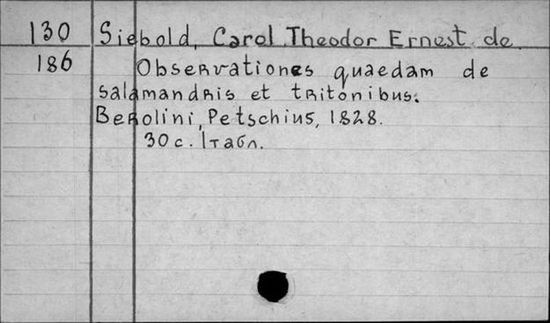 130 Siebold, Carol Theodor Ernest de.
186 Observationes quaedam de
salamandris et tritonibus.
Berolini, Petschius, 1828.
30 с. 1 табл.